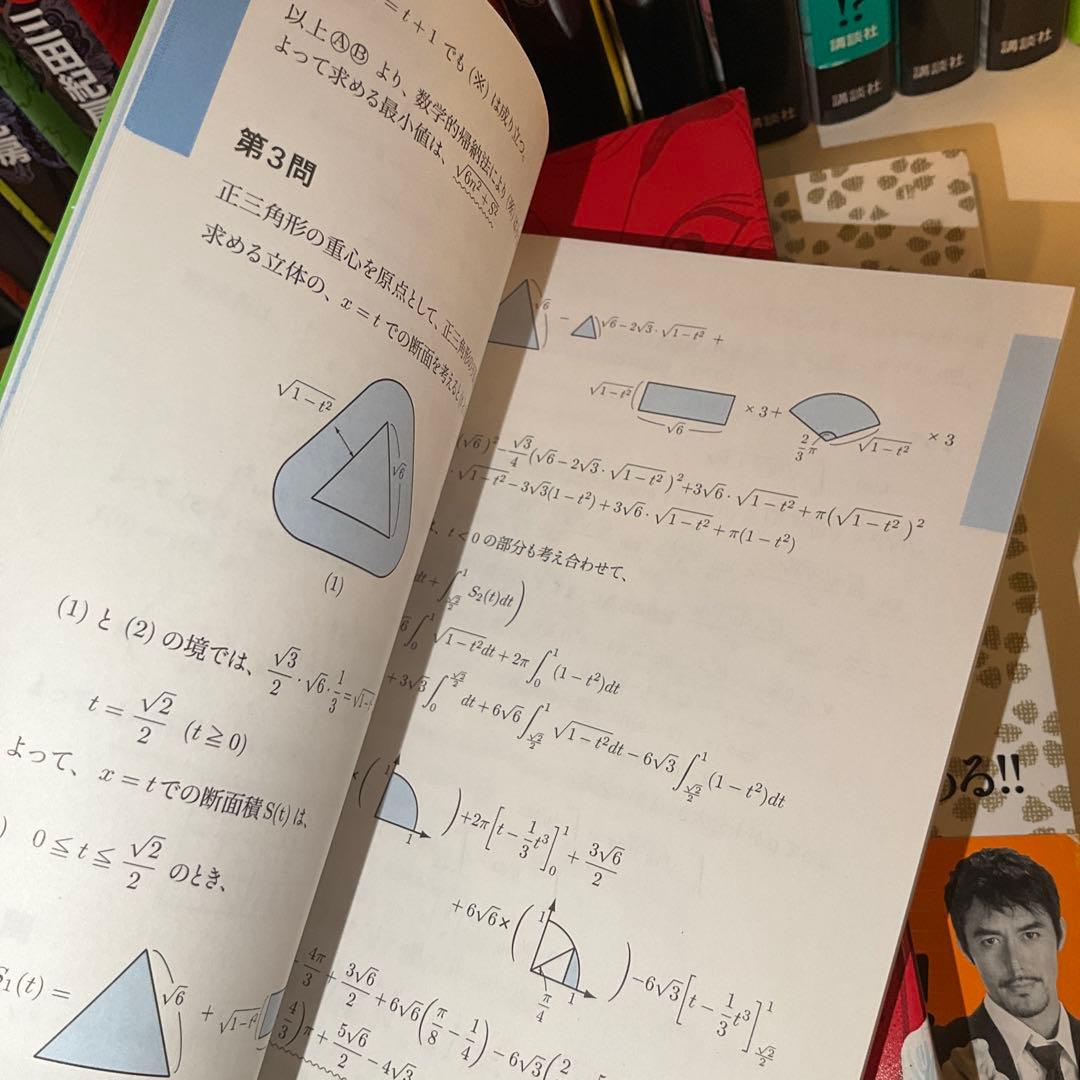 講談社
講談社
講談社
!?
= t + 1 でも (※) は成り立つ。
以上ⒶⒷ より、数学的帰納法により
よって求める最小値は、√(6n²+S²)
第3問
正三角形の重心を原点として、正三角形の
求める立体の、x = t での断面を考えると
√(1−t²)
√6
(1)
(1) と (2) の境では、√3/2 · √6 · 1/3 = √1−t
t = √2/2 (t ≧ 0)
よって、x = t での断面積 S(t) は、
0 ≦ t ≦ √2/2 のとき、
S₁(t) = √6 + √(1−t²)
√6 − √6 − 2√3 · √(1−t²) +
√(1−t²) √6 × 3 + 2/3 π √(1−t²) × 3
(√6)² − √3/4 (√6 − 2√3 · √(1−t²))² + 3√6 · √(1−t²) + π(√(1−t²))²
· √(1−t²) − 3√3(1−t²) + 3√6 · √(1−t²) + π(1−t²)
t < 0 の部分も考え合わせて、
dt + ∫_{√2/2}^{1} S₂(t)dt)
∫₀¹ √(1−t²)dt + 2π ∫₀¹ (1−t²)dt
+ 3√3 ∫₀^{√2/2} dt + 6√6 ∫_{√2/2}^{1} √(1−t²)dt − 6√3 ∫_{√2/2}^{1} (1−t²)dt
× ( 1 1 ) + 2π [t − 1/3 t³]₀¹ + 3√6/2
+ 6√6 × ( 1 π/4 1 ) − 6√3 [t − 1/3 t³]_{√2/2}^{1}
4π/3 + 3√6/2 + 6√6 (π/8 − 1/4) − 6√3 (2
4/3) π + 5√6/2 − 4√3
る!!